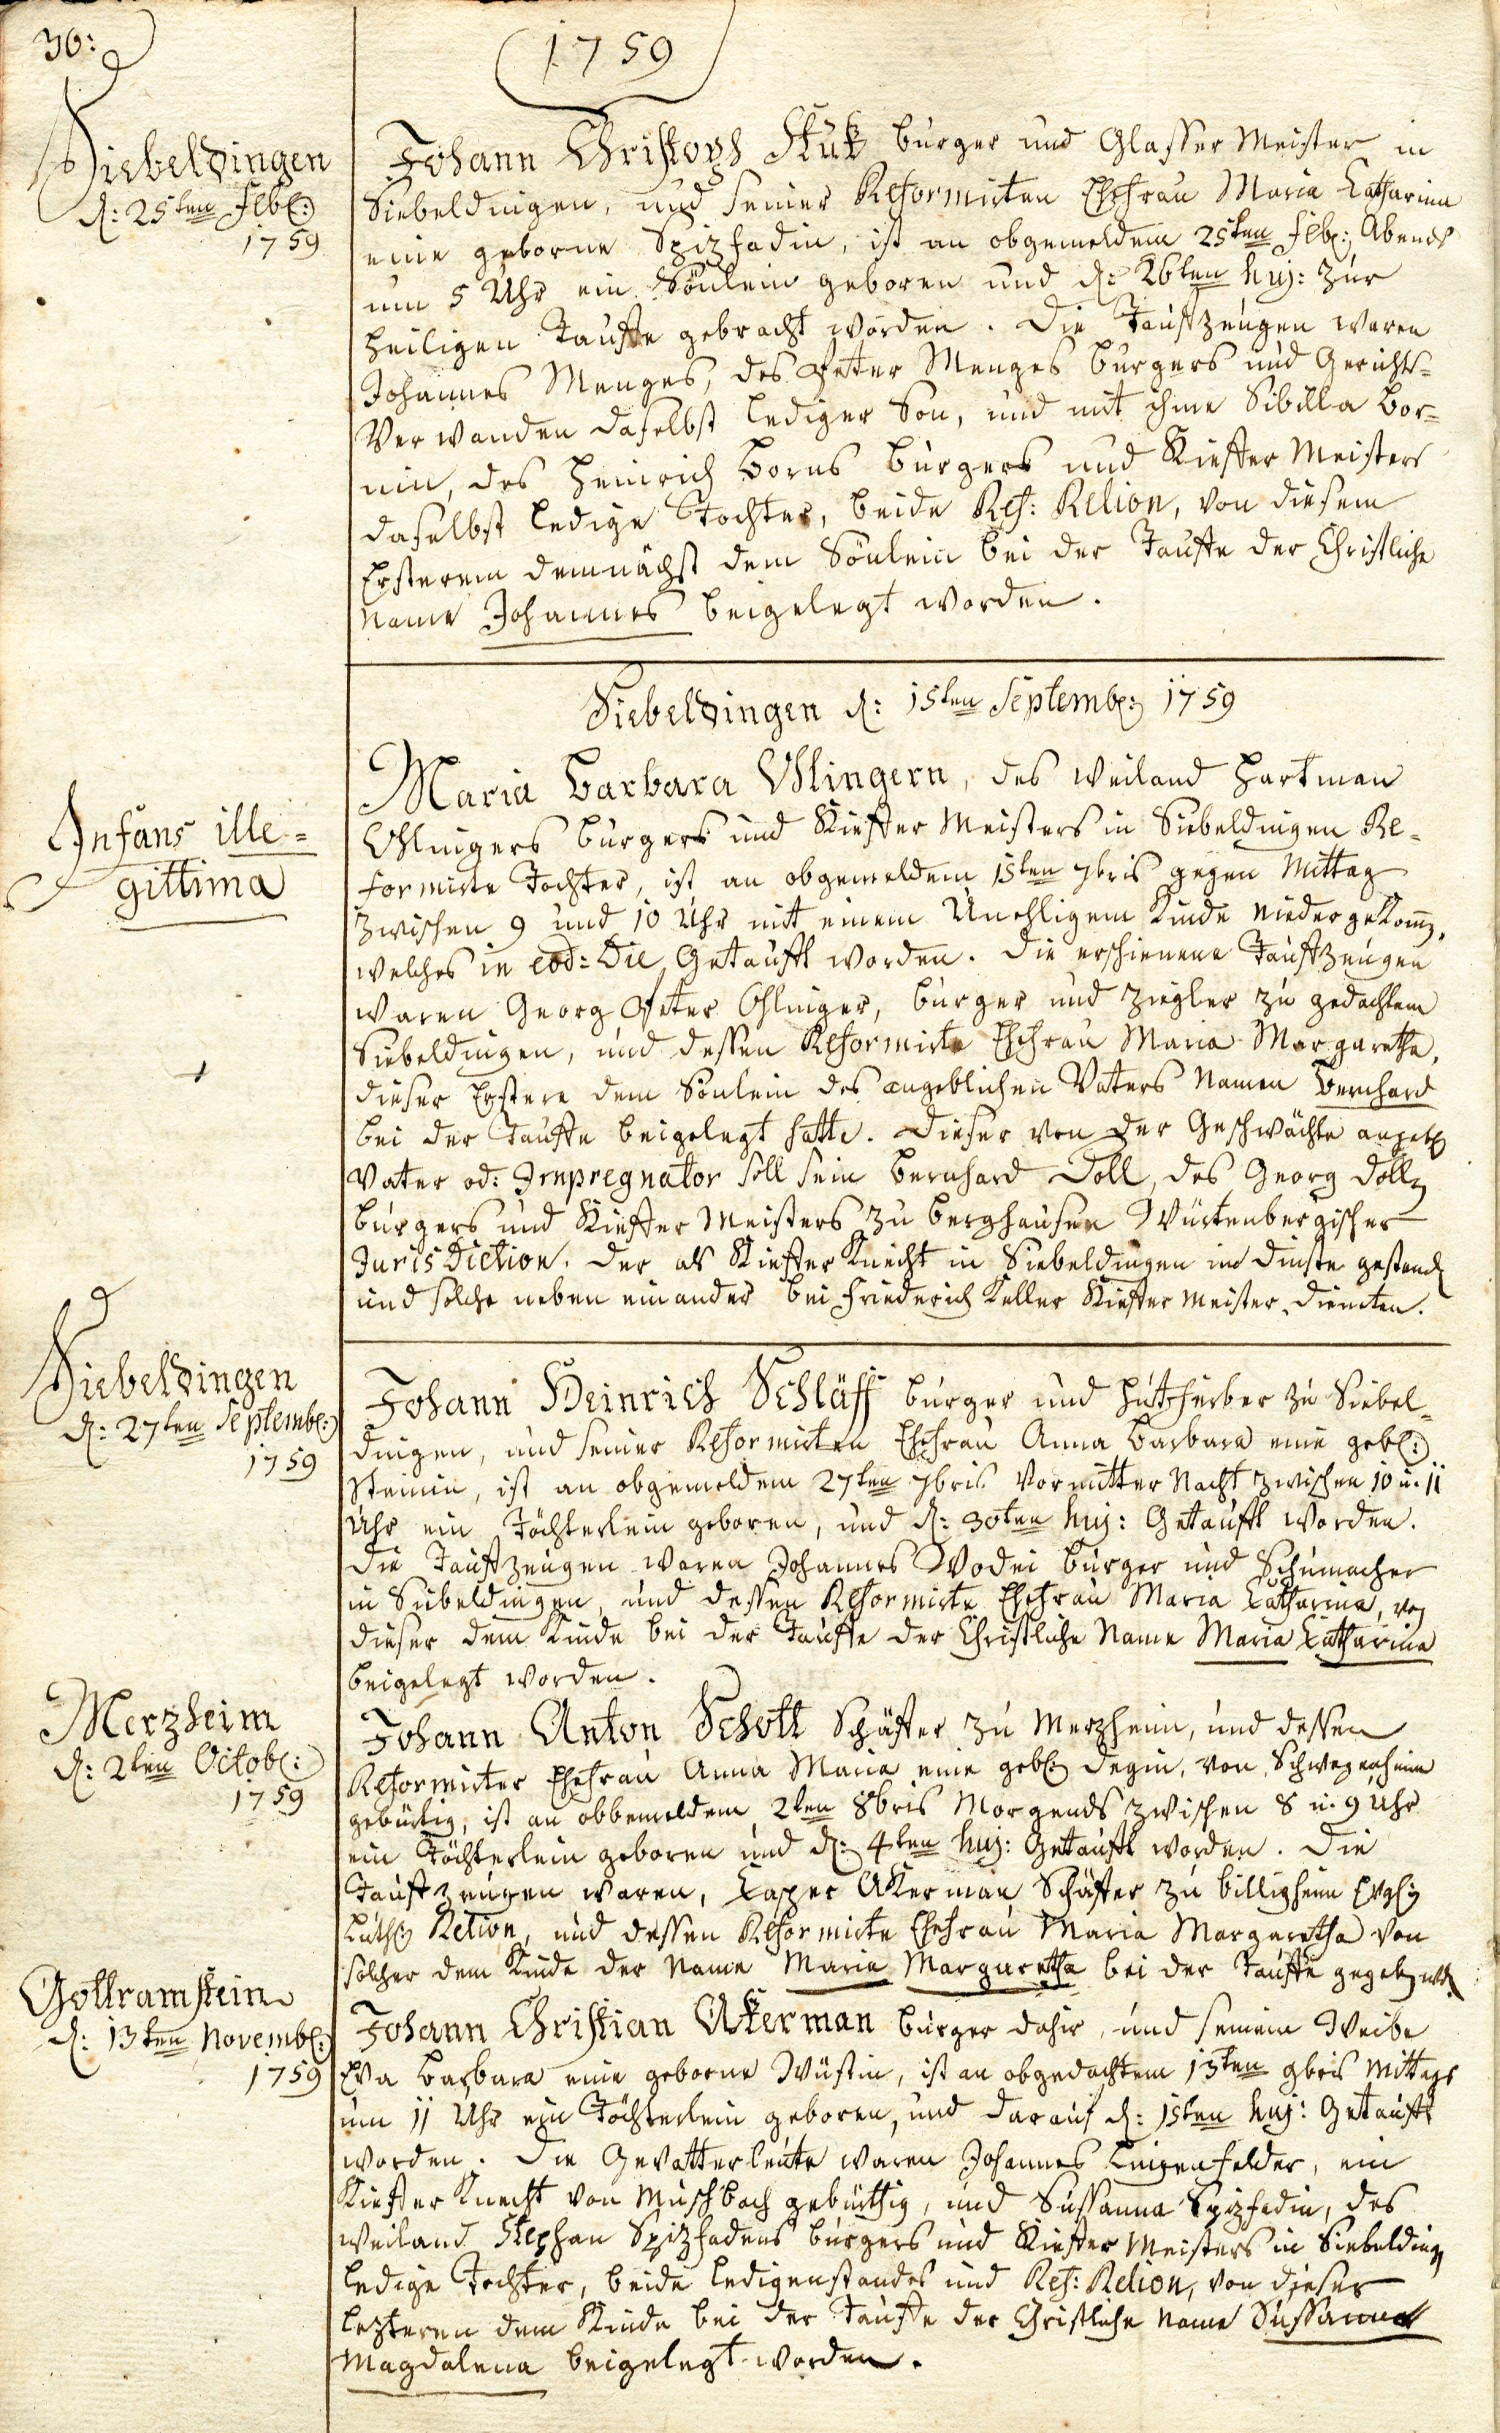 36:
1759
Siebeldingen
d: 25ten Febr:
1759
Johann Christoph Stuk burger und Glasser Meister in
Siebeldingen, und seiner Reformirten Ehefrau Maria Catharina
eine geborne Spizfadin, ist an obgemeldem 25ten Febr: Abends
um 5 Uhr ein Sönlein geboren und d: 26ten huj: zur
heiligen Tauffe gebracht worden. Die Taufzeugen waren
Johannes Menges, des Peter Menges burgers und Gerichts-
Verwanden daselbst lediger Son, und mit ihme Sibilla Bor-
nin, des Heinrich Borns burgers und Kieffer Meisters
daselbst ledige Tochter, beide Ref: Relion, von diesem
Ersterem demnächst dem Sönlein bei der Tauffe der Christliche
Name Johannes beigelegt worden.
Siebeldingen d: 15ten Septembr: 1759
Infans ille-
gittima
Maria Barbara Ohlingern, des weiland Hartman
Ohlingers burgers und Kieffer Meisters in Siebeldingen Re-
formirte Tochter, ist an obgemeldem 15ten 7bris gegen Mittag
zwischen 9 und 10 Uhr mit einem Unehligem Kinde niedergekom̄,
welches in eod: Die Getaufft worden. Die erschienene Taufzeugen
waren Georg Peter Ohlinger, burger und Ziegler zu gedachtem
Siebeldingen, und dessen Reformirte Ehefrau Maria Margaretha,
dieser Erstere dem Sönlein des angeblichen Vaters Namen Bernhard
bei der Tauffe beigelegt hatte. Dieser von der Geschwächte angebl
Vater od: Impregnator soll sein Bernhard Doll, des Georg Dolls
burgers und Kieffer Meisters zu Berghausen Würtenbergischer
Juris Diction. Der als Kieffer Knecht in Siebeldingen in Dinste gestand
und solche neben einander bei Friederich Keller Kieffer Meister dieneten.
Siebeldingen
d: 27ten Septembr:
1759
Johann Heinrich Schläff burger und Hutfärber zu Siebel-
dingen, und seiner Reformirten Ehefrau Anna Barbara eine geb:
Steinin, ist an obgemeldem 27ten 7bris Vormitter Nacht zwischen 10 u. 11
Uhr ein Töchterlein geboren, und d: 30ten huj: Getaufft worden.
Die Taufzeugen waren Johannes Wodei burger und Schumacher
in Siebeldingen, und dessen Reformirte Ehefrau Maria Catharina, von
dieser dem Kinde bei der Tauffe der Christliche Name Maria Catharina
beigelegt worden.
Merzheim
d: 2ten Octobr:
1759
Johann Anton Schott Schäffer zu Merzheim, und dessen
Reformirter Ehefrau Anna Maria eine geb: Degin, von Schwegenheim
gebürtig, ist an obbemeldem 2ten 8bris Morgends zwischen 8 u. 9 Uhr
ein Töchterlein geboren und d: 4ten huj: Getaufft worden. Die
Taufzeugen waren, Casper Akerman Schäffer zu Billigheim Evgl:
Luth: Relion, und dessen Reformirte Ehefrau Maria Margaretha von
solcher dem Kinde der Name Maria Margaretha bei der Tauffe gegeb: wd.
Gottramstein
d: 13ten Novembr:
1759
Johann Christian Akerman burger dahir, und seinem Weibe
Eva Barbara eine geborne Wüstin, ist an obgedachtem 13ten 9bris Mittags
um 11 Uhr ein Töchterlein geboren, und darauf d: 15ten huj: Getaufft
worden. Die Gevatterleute waren Johannes Lingenfelder, ein
Kieffer Knecht von Muschbach gebürthig, und Sussanna Spizfadin, des
weiland Stephan Spizfadens burgers und Kieffer Meisters in Siebelding
ledige Tochter, beide ledigenstandes und Ref: Relion, von dieser
lezteren dem Kinde bei der Tauffe der Christliche Name Sussanna
Magdalena beigelegt worden.